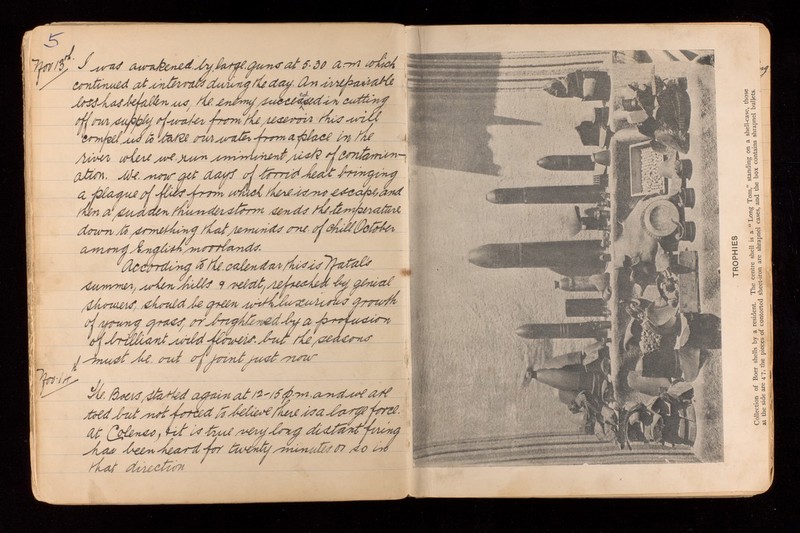 5
Nov 13th
I was awakened by large guns at 5.30 a.m which
continued at intervals during the day. An irrepairable
loss has befallen us, the enemy succeeded in cutting
off our supply of water from the reservoir this will
compel us to take our water from a place in the
river where we run imminent risk of contamin-
ation. We now get days of torrid heat bringing
a plague of flies from which there is no escape, and
then a sudden thunderstorm sends the temperature
down to something that reminds one of chill October
among English moorlands.
According to the calendar this is Natals
summer, when hills & veldt, refreshed by genial
showers, should be green with luxurious growth
of young grass, or brightened by a profusion
of brilliant wild flowers. but the seasons
must be out of joint just now
Nov. 14th
The Boers started again at 12-15 p.m. and we are
told but not forced to believe there is a large force
at Colenso, tit is true very long distant firing
has been heard for twenty minutes or so in
that direction
TROPHIES
Collection of Boer shells by a resident. The centre shell is a "Long Tom," standing on a shell-case, those
at the side are 4.7, the pieces of contorted sheet-iron are shrapnel cases, and the box contains shrapnel bullets.